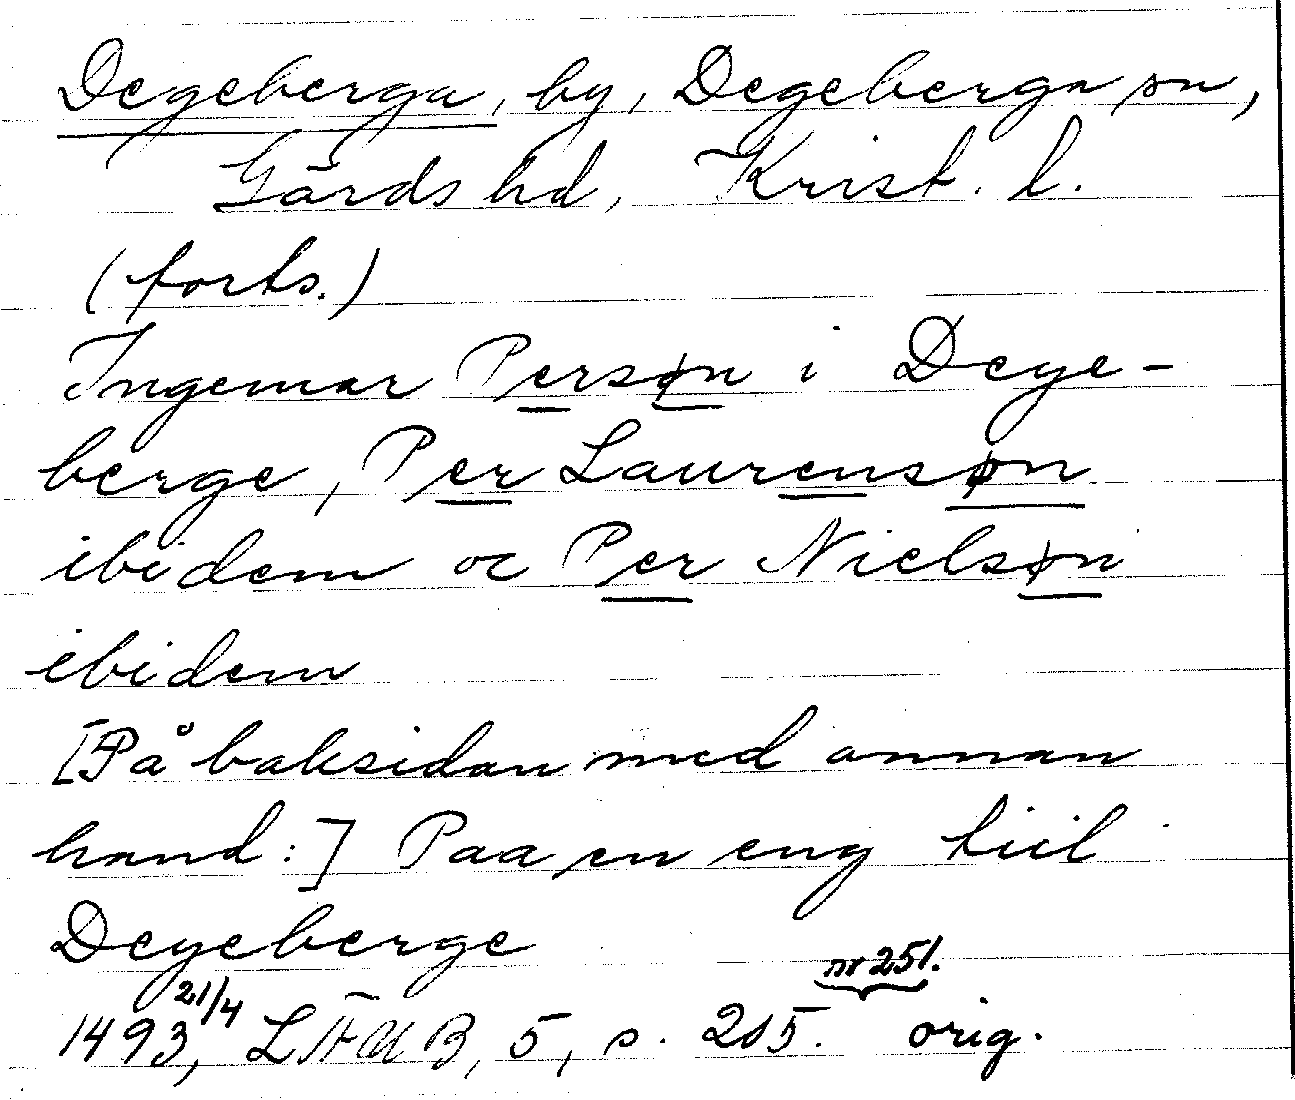 Degeberga, by, Degeberga sn,
Gärds hd, Krist. l.
(forts.)
Ingemar Persøn i Deye-
berge, Per Laurensøn
ibidem oc Per Nielsøn
ibidem
[På baksidan med annan
hand:] Paa en eng tiil
Deyeberge
nr 251.
1493 21/4, LÄUB, 5, s. 205. orig.